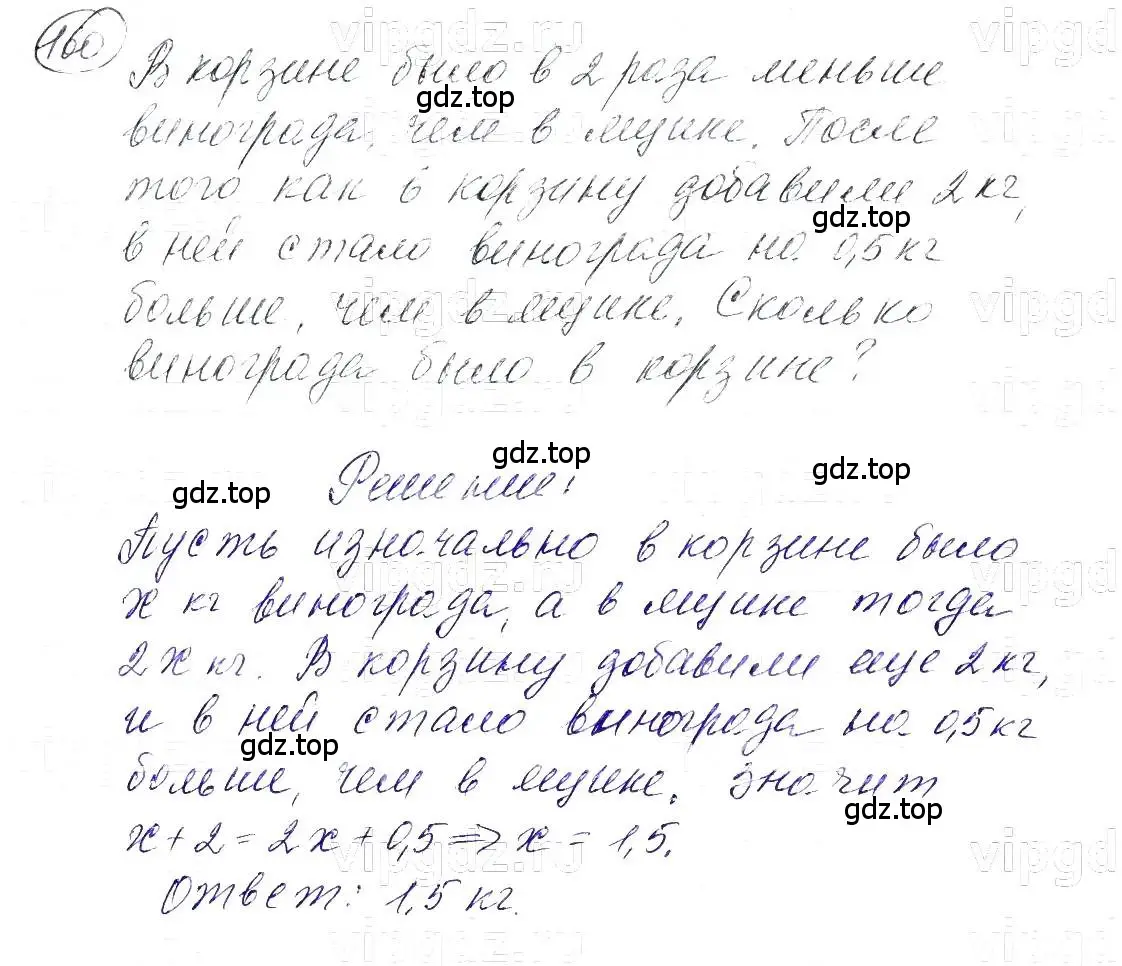 160
В корзине было в 2 раза меньше
винограда, чем в ящике. После
того как в корзину добавили 2 кг,
в ней стало винограда на 0,5 кг
больше, чем в ящике. Сколько
винограда было в корзине?
Решение:
Пусть изначально в корзине было
x кг винограда, а в ящике тогда
2x кг. В корзину добавили еще 2 кг,
и в ней стало винограда на 0,5 кг
больше, чем в ящике. Значит
x + 2 = 2x + 0,5 => x = 1,5.
Ответ: 1,5 кг.
gdz.top
gdz.top
gdz.top
gdz.top
gdz.top
gdz.top
gdz.top
vipgdz.ru
vipgd
vipgd
vipgd
vipgd
vipgd
vipgd
vipgd